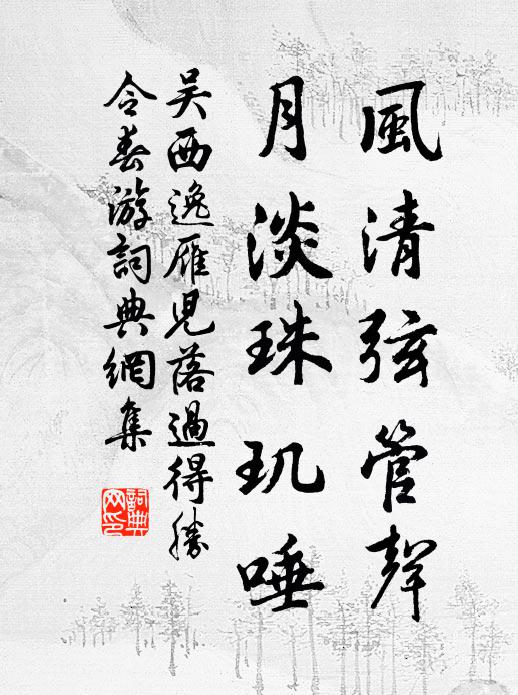 風清弦管聲
月淡珠玑唾
吴西逸雁兒落過得勝
令春游詞典網集
詞典
网印